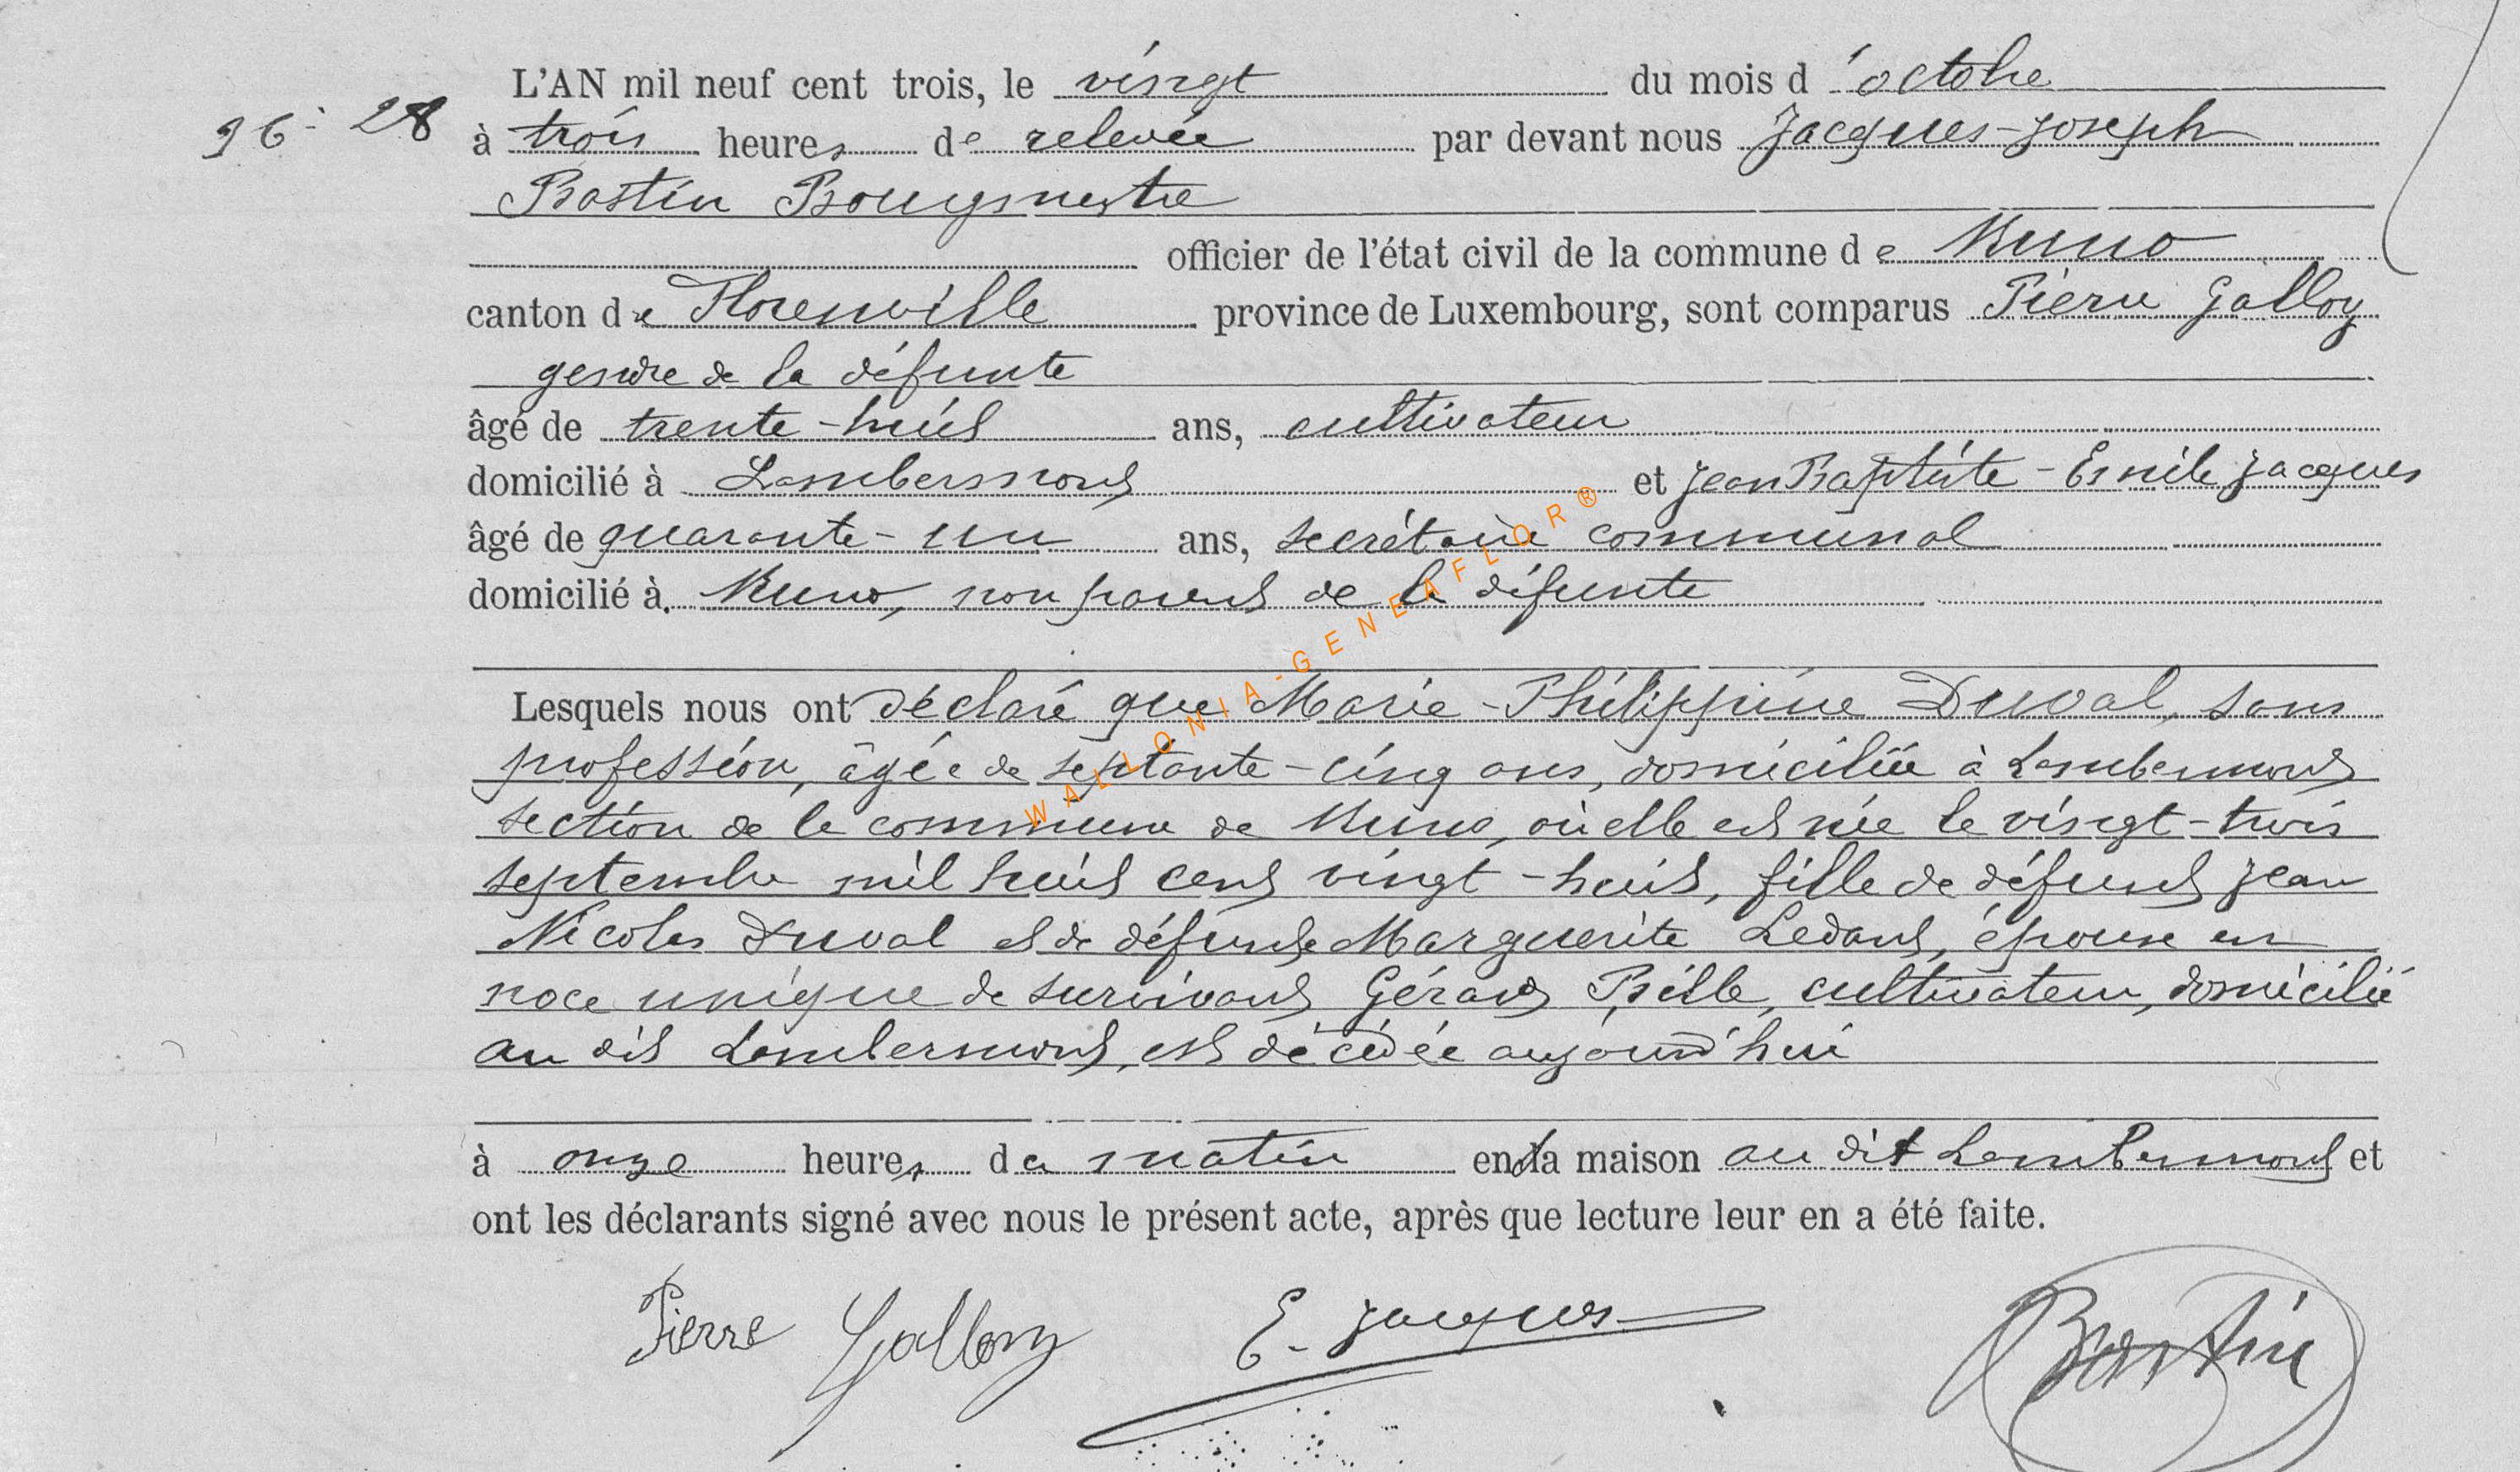 L'AN mil neuf cent trois, le vingt du mois d'octobre
28 à trois heures de relevée par devant nous Jacques-Joseph
Bastin Bourgmestre
officier de l'état civil de la commune de Muno
canton de Florenville province de Luxembourg, sont comparus Pierre Galloy
gendre de la défunte
âgé de trente-huit ans, cultivateur
domicilié à Lambermont et Jean Baptiste-Emile Jacques
âgé de quarante-un ans, secrétaire communal
domicilié à Muno, non parent de la défunte
Lesquels nous ont déclaré que Marie-Philippine Duval, sans
profession, âgée de septante-cinq ans, domiciliée à Lambermont
section de la commune de Muno, où elle est née le vingt-trois
septembre mil huit cent vingt-huit, fille de défunt Jean
Nicolas Duval et de défunte Marguerite Ledant, épouse en
noce unique de survivant Gérard Bille, cultivateur, domicilié
au dit Lambermont, est décédée aujourd'hui
à onze heures du matin en la maison au dit Lambermont et
ont les déclarants signé avec nous le présent acte, après que lecture leur en a été faite.
Pierre Galloy E. Jacques Bastin
WALLONIA-GENEAFLOR®